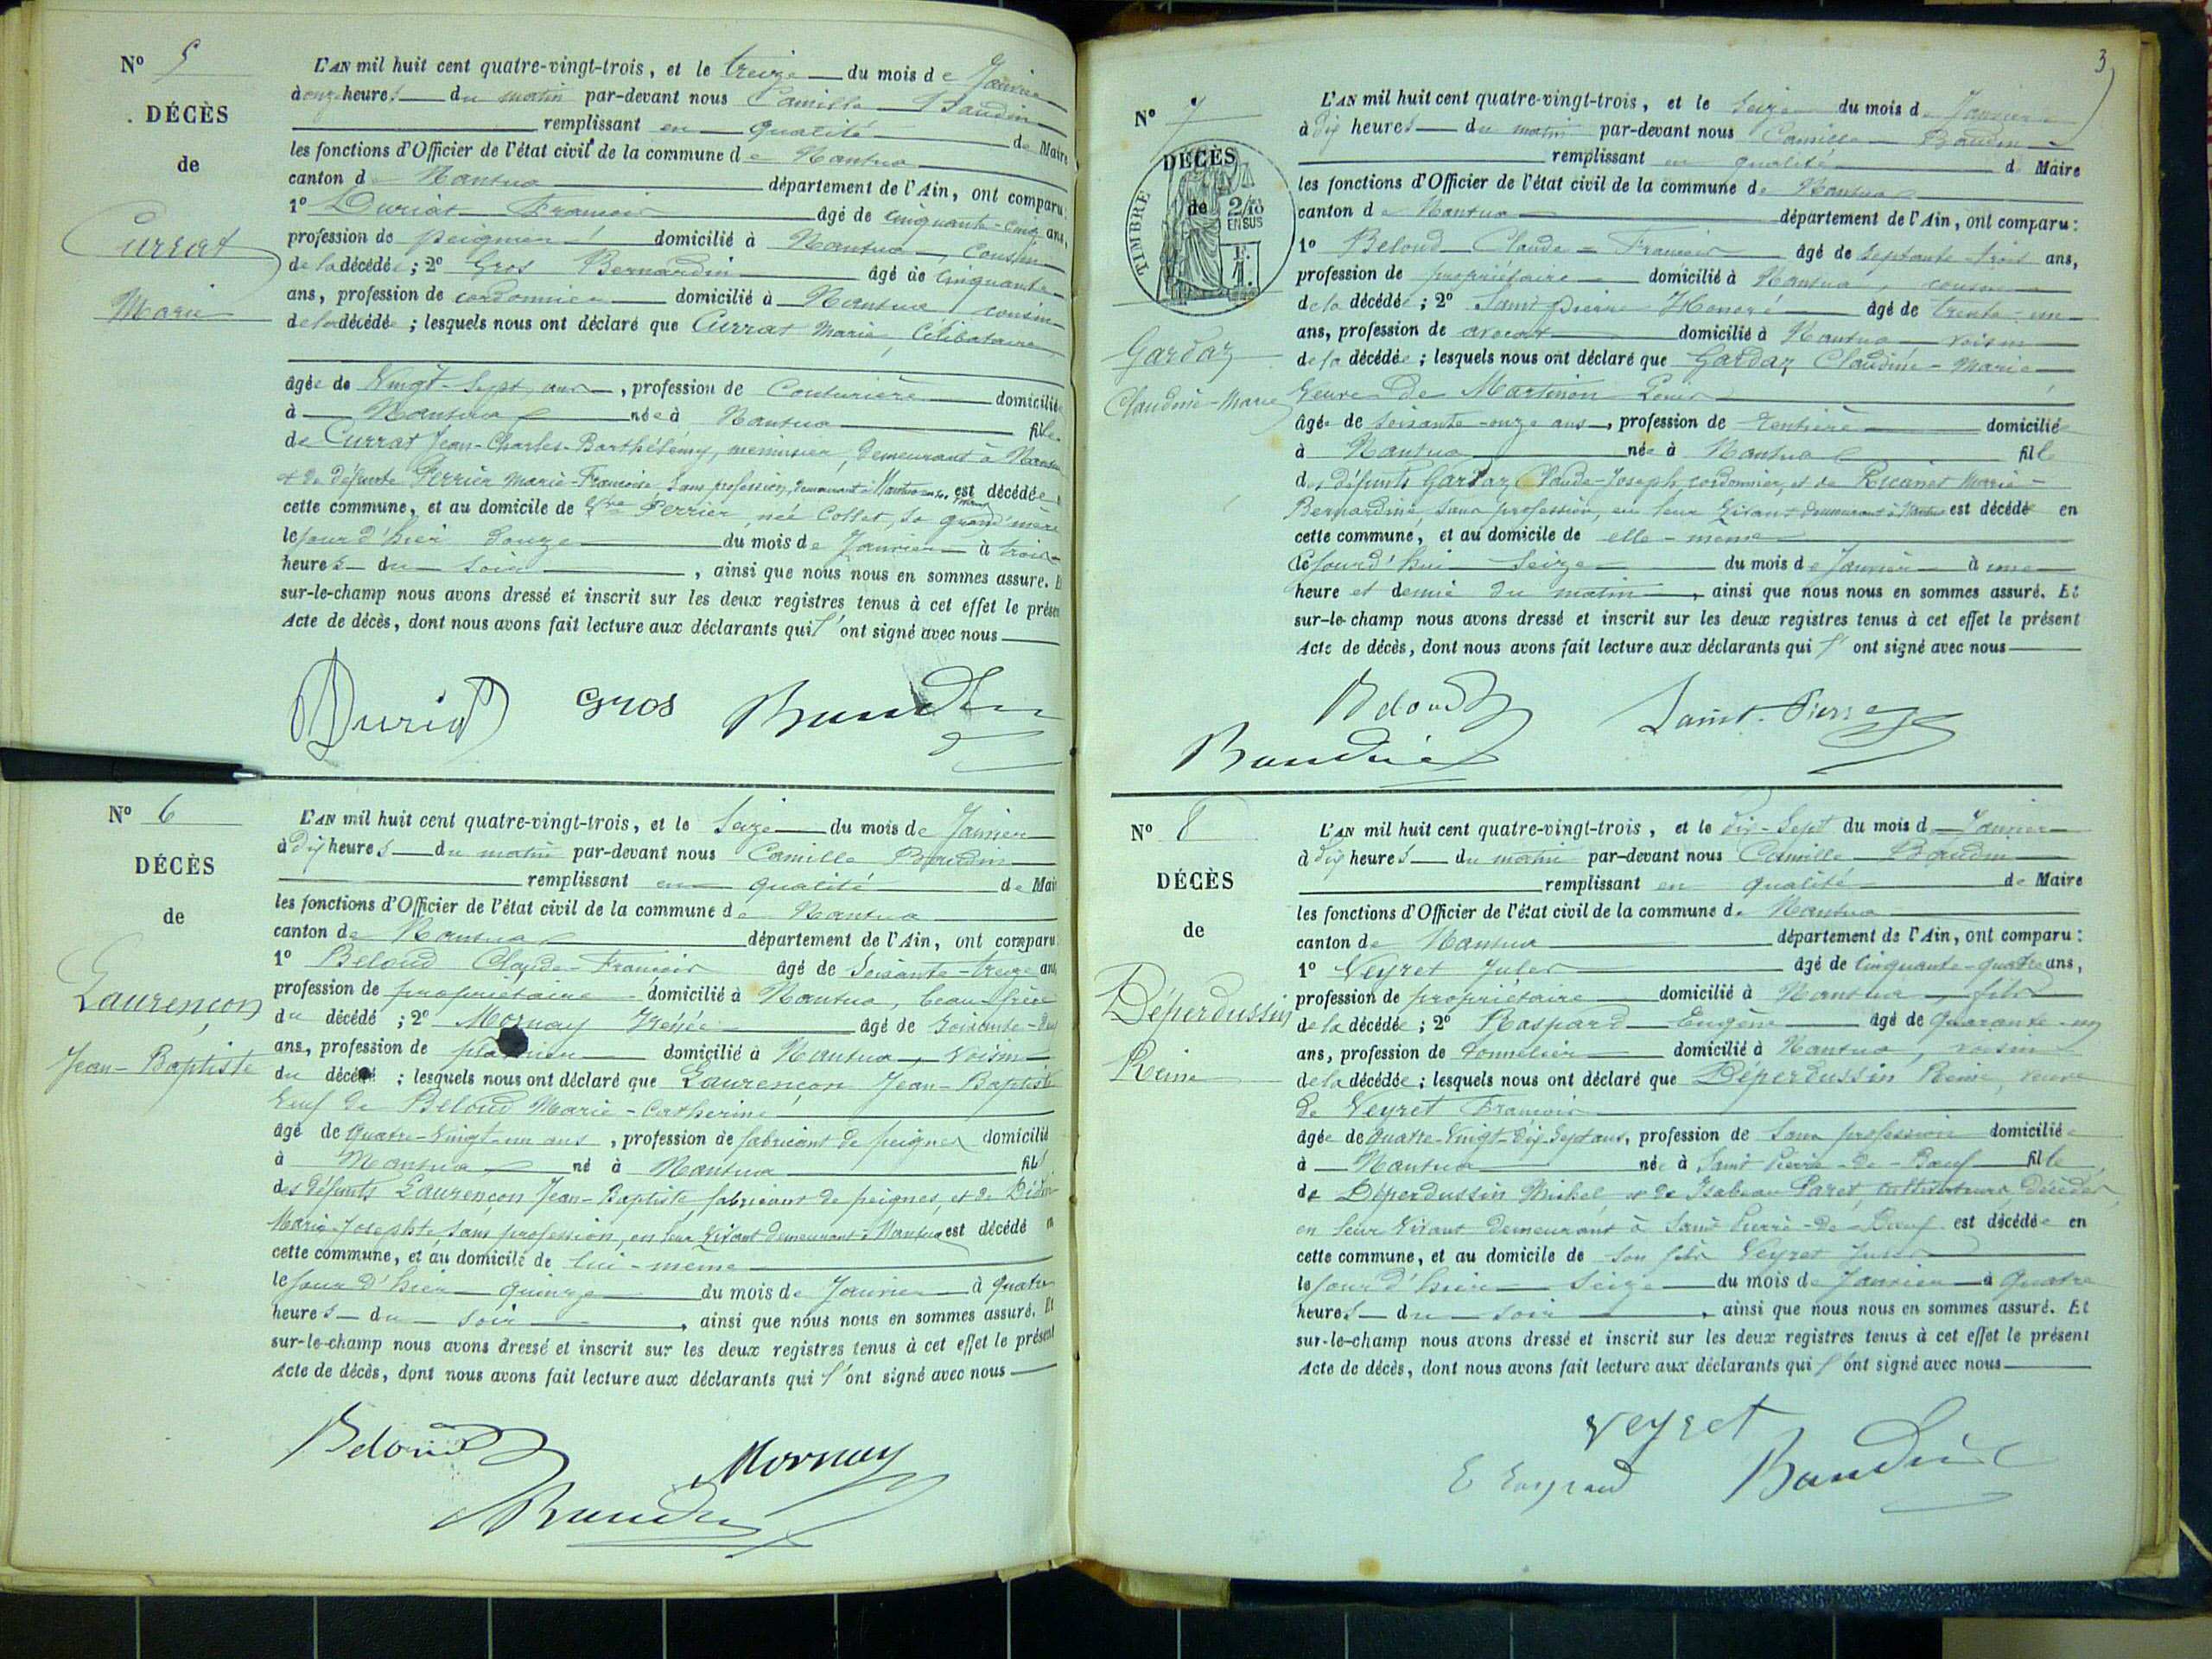 Nº 5
DÉCÈS
de
Currat
Marie
L'AN mil huit cent quatre-vingt-trois, et le treize du mois de Janvier
à onze heures du matin par-devant nous Camille Baudin
remplissant en qualité de Maire
les fonctions d'Officier de l'état civil de la commune de Nantua
canton de Nantua département de l'Ain, ont comparu:
1º Duriat François âgé de cinquante-cinq ans,
profession de peigneur domicilié à Nantua, Cousin
de la décédée; 2º Gros Bernardin âgé de cinquante
ans, profession de cordonnier domicilié à Nantua cousin
de la décédée; lesquels nous ont déclaré que Currat Marie, Célibataire
âgée de Vingt-Sept ans, profession de Couturière domiciliée
à Nantua née à Nantua fille
de Currat Jean-Charles-Barthélémy, menuisier, demeurant à Nantua
et de défunte Perrier Marie-Françoise, sans profession, demeurant à Nantua est décédée
cette commune, et au domicile de Perrier, née Collet, sa grand'mère
le jour d'hier Douze du mois de Janvier à trois
heures du soir, ainsi que nous nous en sommes assuré. Et
sur-le-champ nous avons dressé et inscrit sur les deux registres tenus à cet effet le présent
Acte de décès, dont nous avons fait lecture aux déclarants qui l'ont signé avec nous
Duriat Gros Baudin
Nº 6
DÉCÈS
de
Laurençon
Jean-Baptiste
L'AN mil huit cent quatre-vingt-trois, et le Seize du mois de Janvier
à Dix heures du matin par-devant nous Camille Baudin
remplissant en qualité de Maire
les fonctions d'Officier de l'état civil de la commune de Nantua
canton de Nantua département de l'Ain, ont comparu
1º Beloud Claude-François âgé de Soixante-treize ans
profession de propriétaire domicilié à Nantua, beau-frère
du décédé; 2º Mornay Irénée âgé de soixante-deux
ans, profession de domicilié à Nantua, Voisin
du décédé; lesquels nous ont déclaré que Laurençon Jean-Baptiste
Veuf de Beloud Marie-Catherine
âgé de quatre-Vingt-un ans, profession de fabricant de peignes domicilié
à Nantua né à Nantua fils
des défunts Laurençon Jean-Baptiste, fabricant de peignes, et de
Marie-Josephte, sans profession, en leur Vivant demeurant à Nantua est décédé en
cette commune, et au domicile de lui-même
le jour d'hier quinze du mois de Janvier à quatre
heures du soir, ainsi que nous nous en sommes assuré. Et
sur-le-champ nous avons dressé et inscrit sur les deux registres tenus à cet effet le présent
Acte de décès, dont nous avons fait lecture aux déclarants qui l'ont signé avec nous
Beloud Mornay
Baudin
3
Nº 7
DÉCÈS
de
TIMBRE
2/10
EN SUS
Gardaz
Claudine-Marie
L'AN mil huit cent quatre-vingt-trois, et le Seize du mois de Janvier
à dix heures du matin par-devant nous Camille Baudin
remplissant en qualité de Maire
les fonctions d'Officier de l'état civil de la commune de Nantua
canton de Nantua département de l'Ain, ont comparu:
1º Beloud Claude-François âgé de septante-trois ans,
profession de propriétaire domicilié à Nantua, cousin
de la décédée; 2º Saint-pierre Honoré âgé de trente-un
ans, profession de avocat domicilié à Nantua voisin
de la décédée; lesquels nous ont déclaré que Gardaz Claudine-Marie
Veuve de Martinon Louis
âgée de soixante-onze ans, profession de Rentière domiciliée
à Nantua née à Nantua fille
des défunts Gardaz Claude-Joseph, cordonnier, et de Marie-
Bernardine, sans profession, en leur Vivant demeurant à Nantua est décédée en
cette commune, et au domicile de elle-même
le jourd'hui Seize du mois de Janvier à une
heure et demie du matin, ainsi que nous nous en sommes assuré. Et
sur-le-champ nous avons dressé et inscrit sur les deux registres tenus à cet effet le présent
Acte de décès, dont nous avons fait lecture aux déclarants qui l'ont signé avec nous
Beloud Saint-Pierre
Baudin
Nº 8
DÉCÈS
de
Déperdussin
Reine
L'AN mil huit cent quatre-vingt-trois, et le dix-Sept du mois de Janvier
à dix heures du matin par-devant nous Camille Baudin
remplissant en qualité de Maire
les fonctions d'Officier de l'état civil de la commune de Nantua
canton de Nantua département de l'Ain, ont comparu:
1º Veyret Jules âgé de Cinquante-quatre ans,
profession de propriétaire domicilié à Nantua, fils
de la décédée; 2º Raspard Eugène âgé de quarante-un
ans, profession de tonnelier domicilié à Nantua, voisin
de la décédée; lesquels nous ont déclaré que Déperdussin Reine, veuve
de Veyret François
âgée de quatre-Vingt-dix-Sept ans, profession de Sans profession domiciliée
à Nantua née à Saint-Pierre-de-Bœuf fille
de Déperdussin Michel, et de Isabeau Paret, cultivateurs, Décédés,
en leur Vivant demeurant à Saint-Pierre-de-Bœuf est décédée en
cette commune, et au domicile de son fils Veyret Jules
le jour d'hier Seize du mois de Janvier à quatre
heures du soir, ainsi que nous nous en sommes assuré. Et
sur-le-champ nous avons dressé et inscrit sur les deux registres tenus à cet effet le présent
Acte de décès, dont nous avons fait lecture aux déclarants qui l'ont signé avec nous
Veyret
Baudin